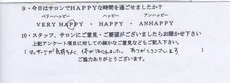 9・今日はサロンでHAPPYな時間を過ごせましたか?
ベリーハッピー ハッピー アンハッピー
VERY HAPPY ・ HAPPY ・ ANHAPPY
10・スタッフ、サロンにご意見・ご要望がございましたらお聞かせ下さい
上記アンケート項目に対しての細かなご意見などもご記入下さい。
ありがとうございました。
ご協力ありがとうございます。